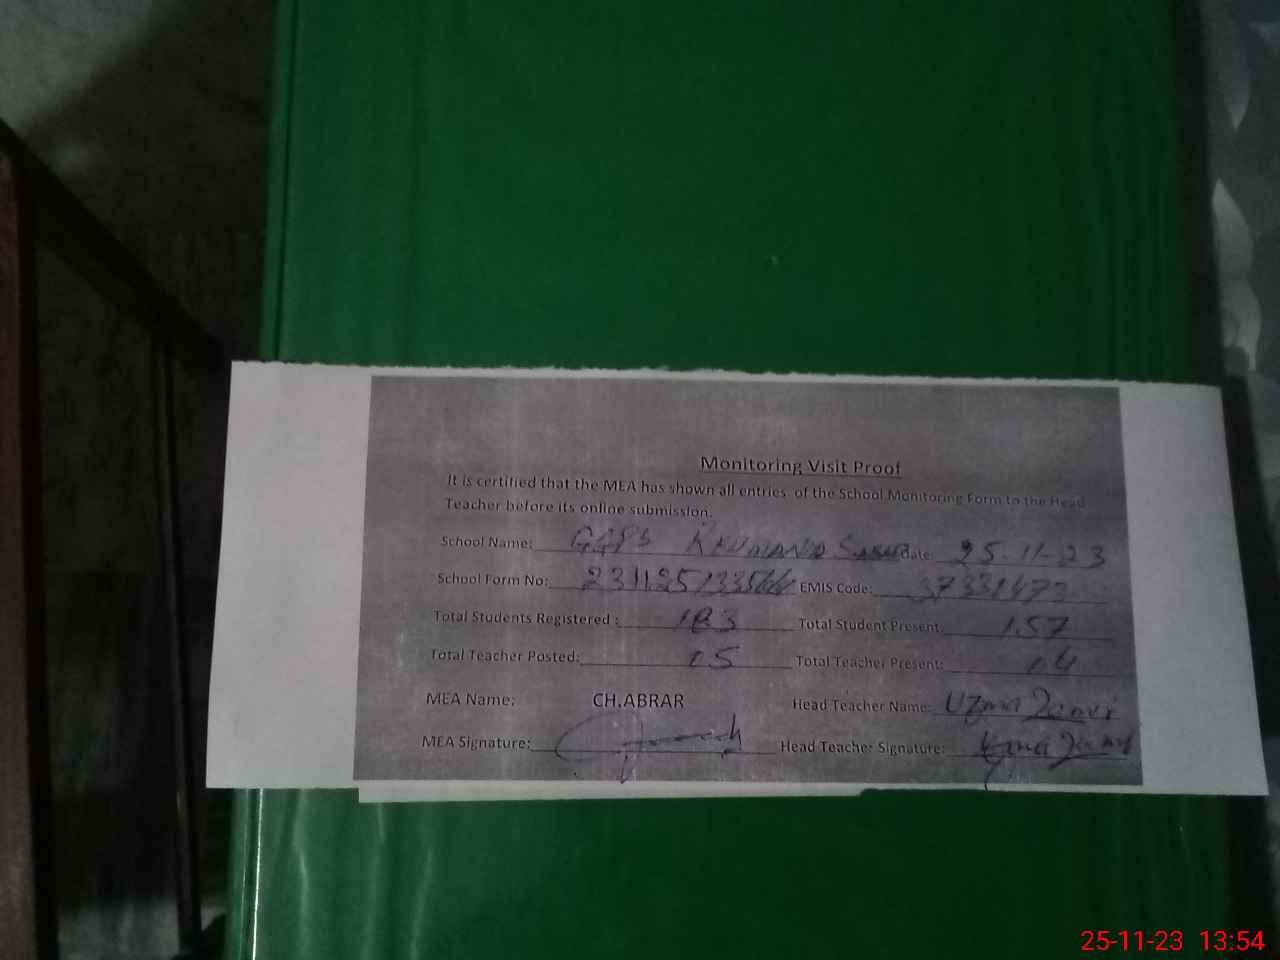 Monitoring Visit Proof
It is certified that the MEA has shown all entries of the School Monitoring Form to the Head
Teacher before its online submission.
School Name: GGPS date: 25-11-23
School Form No: EMIS Code: 37331473
Total Students Registered : 183 Total Student Present: 157
Total Teacher Posted: 05 Total Teacher Present: 04
MEA Name: CH.ABRAR Head Teacher Name: Uzma
MEA Signature: Head Teacher Signature: Uzma
25-11-23 13:54